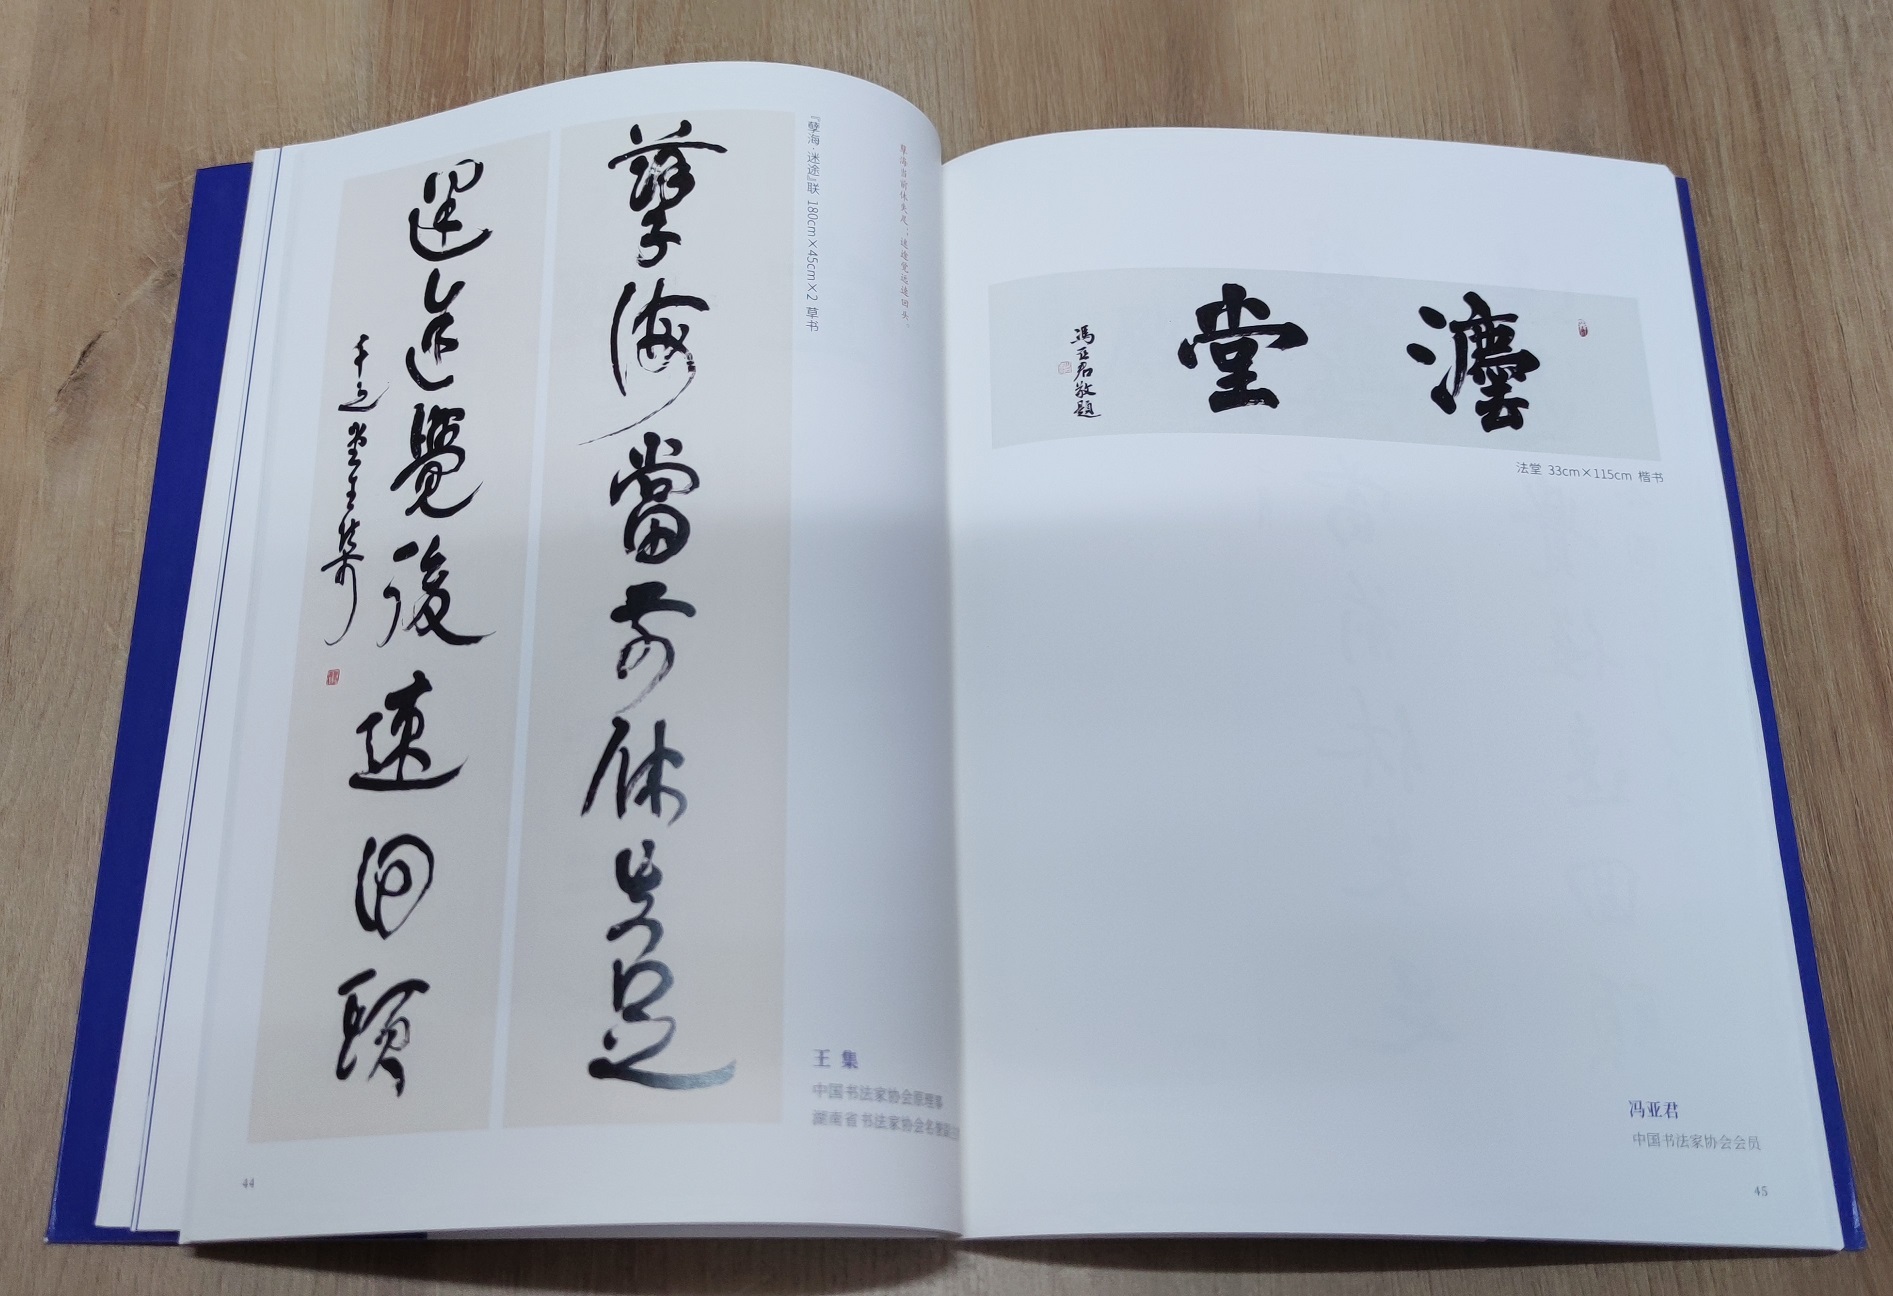 孽海當前休失足
迷途覺後速回頭
孽海当前休失足；迷途觉后速回头。
『孽海·迷途』联 180cm×45cm×2 草书
王 集
中国书法家协会原理事
湖南省书法家协会名誉
44
灋堂
馮亞君敬題
法堂 33cm×115cm 楷书
冯亚君
中国书法家协会会员
45